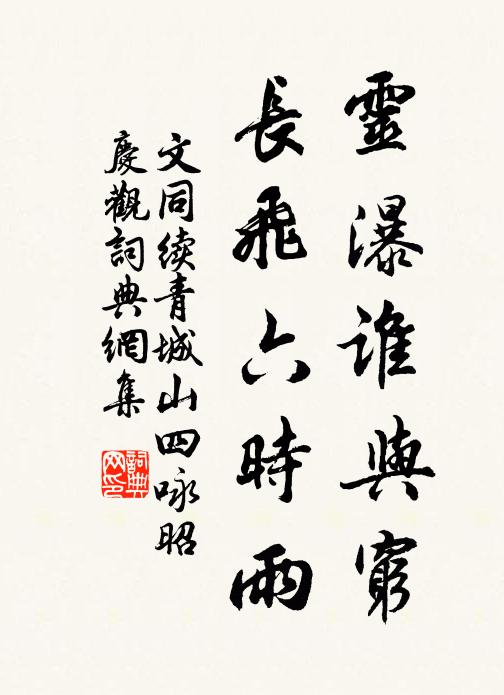 靈瀑誰與窮
長飛六時雨
文同续青城山四咏昭
慶觀詞典網集
詞典網印